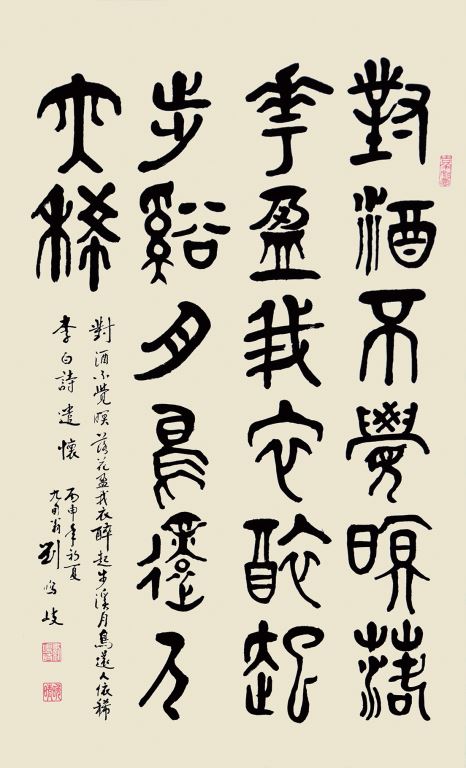 對酒不覺暝落
花盈我衣醉起
步谿月鳥還人
亦稀
對酒不覺暝落花盈我衣醉起步溪月鳥還人依稀
李白詩遣懷
丙申年初夏
九旬翁劉鳴岐